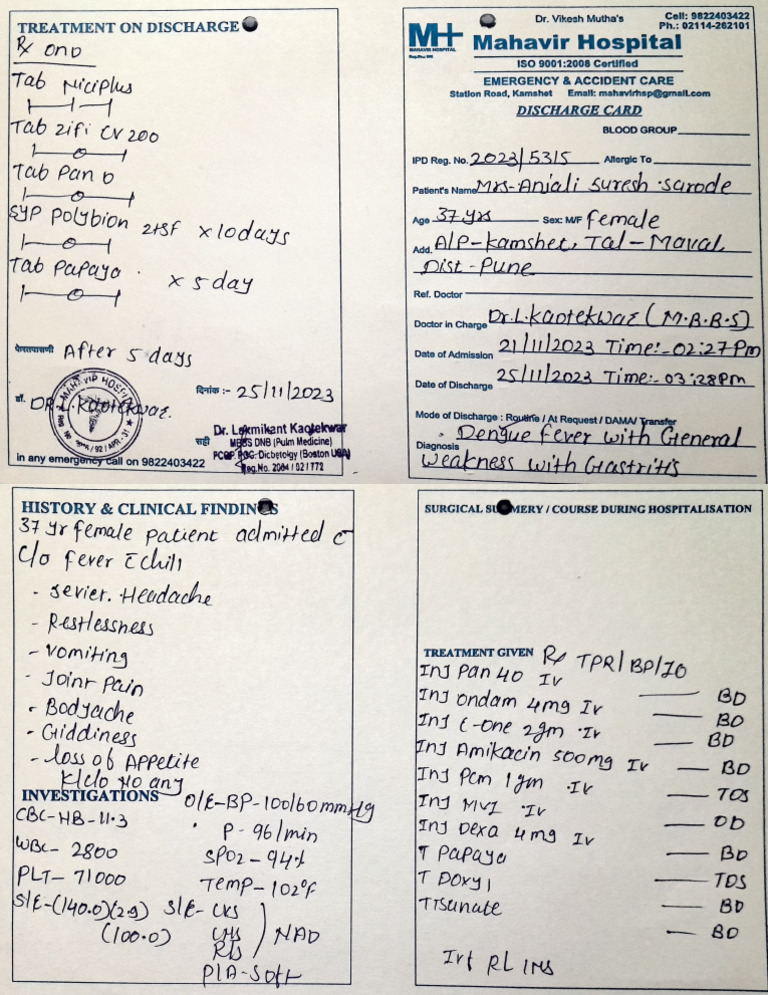 TREATMENT ON DISCHARGE
Rx OND
Tab Niciplus
Tab zifi CV 200
Tab Pan D
SYP Polybion 2tsf x 10 days
Tab Papaya x 5 day
After 5 days
दिनांक :- 25/11/2023
डॉ. DR.L.Kaotekwar.
MAHAVIR HOSPITAL
Dr. Laxmikant Kaotekwar
सही
MBBS DNB (Pulm Medicine)
in any emergency call on 9822403422
Dr. Vikesh Mutha's
Cell: 9822403422
Ph.: 02114-262101
MH
MAHAVIR HOSPITAL
Mahavir Hospital
ISO 9001:2008 Certified
EMERGENCY & ACCIDENT CARE
Station Road, Kamshet Email: mahavirhsp@gmail.com
DISCHARGE CARD
BLOOD GROUP
IPD Reg. No. 2023/5315 Allergic To
Patient's Name Mrs-Anjali Suresh Sarode
Age 37 yrs Sex: M/F female
Add. A/P-Kamshet, Tal-Maval,
Dist-Pune
Ref. Doctor
Doctor in Charge Dr.L.Kaotekwar (M.B.B.S)
Date of Admission 21/11/2023 Time:-02:27Pm
Date of Discharge 25/11/2023 Time:-03:28pm
Mode of Discharge : Routine / At Request / DAMA/ Transfer
Diagnosis Dengue fever with General
weakness with Gastritis
HISTORY & CLINICAL FINDINGS
37 yr female patient admitted c
c/o fever c chill
- sevier. Headache
- Restlessness
- vomiting
- Joint Pain
- Bodyache
- Giddiness
- loss of Appetite
K/c/o No any
INVESTIGATIONS O/E-BP-100/60mmHg
CBC-HB-11.3
P-96/min
WBC-2800
SPO2-94%
PLT-71000
Temp-102°F
S/E-(140.0)(2.9) S/E-CVS
(100.0) CNS NAD
RS
P/A-Soft
SURGICAL SUMMERY / COURSE DURING HOSPITALISATION
TREATMENT GIVEN Rx TPR/BP/IO
Inj Pan 40 Iv — BD
Inj ondam 4mg Iv — BD
Inj C-one 2gm Iv — BD
Inj Amikacin 500mg Iv — BD
Inj Pcm 1gm Iv — TDS
Inj MVI Iv — OD
Inj Dexa 4mg Iv — BD
T Papaya — TDS
T Doxy 1 — BD
T Tisunate — BD
Ivf RL INS